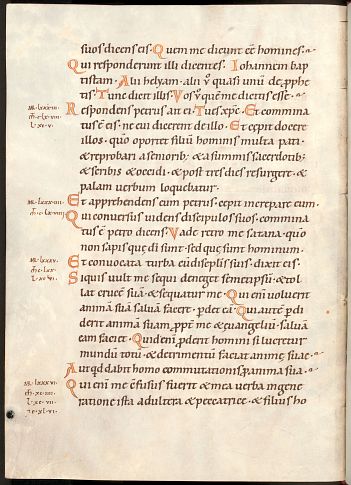 suos dicens eis. Quem me dicunt eē homines.
Qui responderunt illi dicentes. Iohannem bap
tistam. Alii helyam. alii v̄ quasi unū de p̱phe
tis. Tunc dicit illis. Vos v̄ quē me dicitis esse.
Respondens petrus ait ei. Tu es xp̄c. Et commina
tus ē eis. ne cui dicerent de illo. Et cepit docere
illos. quō oportet filiū hominis multa pati.
& reprobari a seniorib; & a summis sacerdotib;
& scribis & occidi. & post tres dies resurgere. &
palam verbum loquebatur.
Et apprehendens eum petrus cepit increpare eum.
Qui conversus videns discipulos suos. commina
tus ē petro dicens. Vade retro me satana. quō
non sapis que dī sunt. sed que sunt hominum.
Et convocata turba cū discipulis suis. dixit eis.
Siquis vult me sequi. deneget semetipsū. & tol
lat crucē suā. & sequatur me. Qui enī voluerit
animā suā salvā facere. p̱det eā. Qui autē p̱di
derit animā suam p̱pt̄ me & euangeliū. salvā
eam faciet. Quid enī p̱derit homini si lucretur
mundū totū. & detrimentū faciat anime sue.
Aut qd dabit homo commutationis p̱ anima sua.
Qui enī me c̄fusus fuerit & mea verba in gene
ratione ista adultera & peccatrice. & filius ho